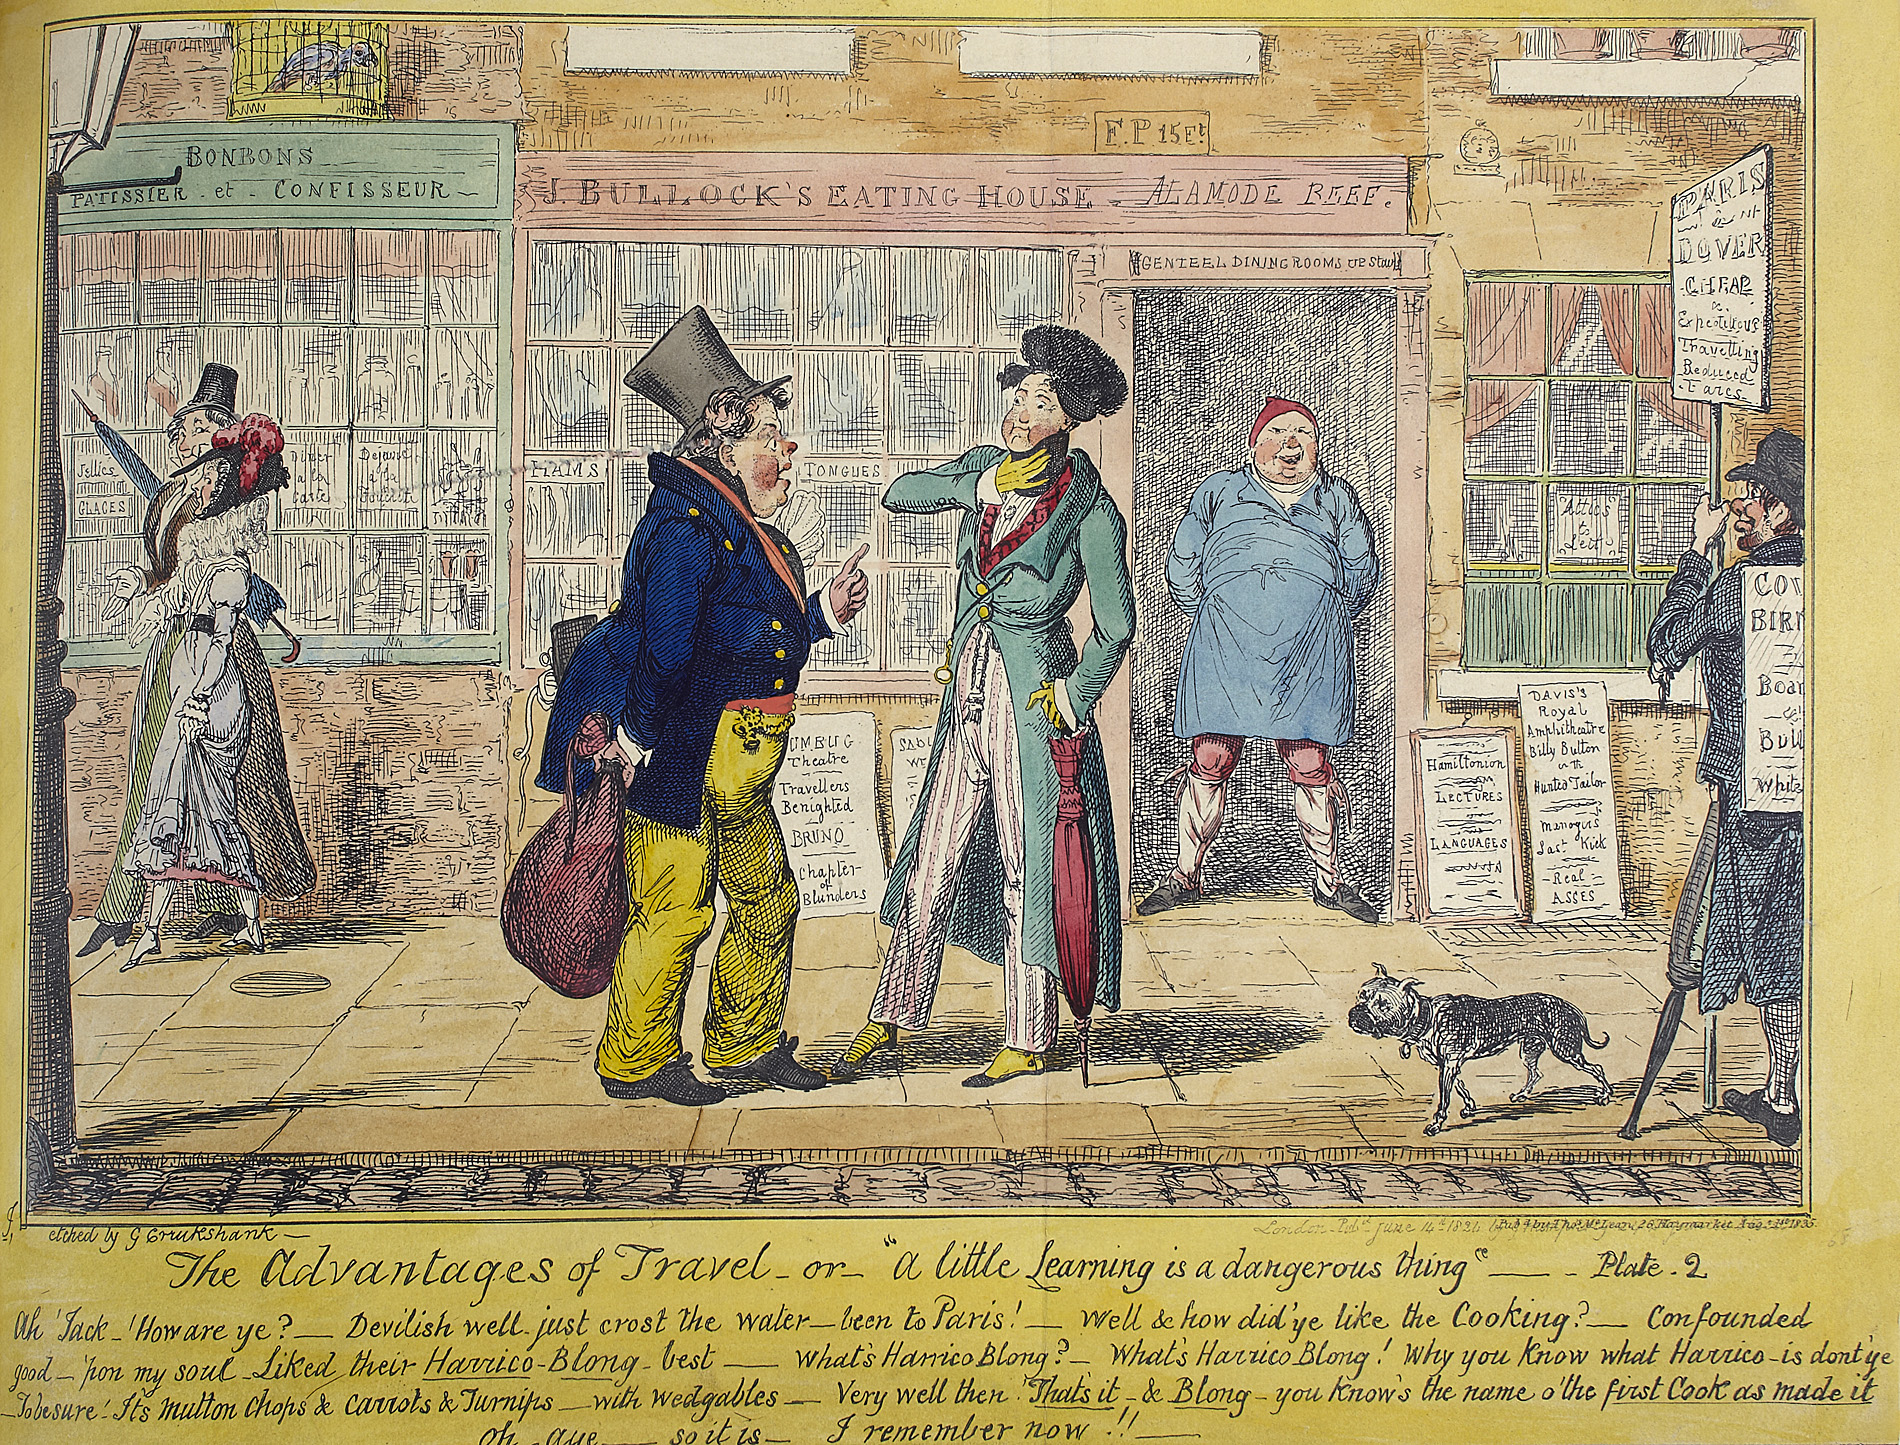 BONBONS
PATISSIER - et - CONFISSEUR
F.P 15Ft
J. BULLOCK'S EATING HOUSE - ALAMODE BEEF.
GENTEEL DINING ROOMS UP Stairs
PARIS
DOVER
CHEAP
&
Expeditious
Travelling
Reduced
Fares
Jellies
GLACES
Diner
a la
Carte
Dejeune
a la
HAMS
TONGUES
Attics
to
Lett
COV
BIRM
Boar
&
Bull
White
UMBUG
Theatre
Travellers
Benighted
BRUNO
Chapter
of
Blunders
SADL
WE
Hamiltonion
LECTURES
LANGUAGES
DAVIS'S
Royal
Amphitheatre
Billy Button
or the
Hunted Tailor
Managers
Last Kick
Real
ASSES
etched by G Cruikshank —
London - Pubd June 14th 1824 by
Pub. by Thos. McLean, 26, Haymarket, Aug. 1st 1835.
The Advantages of Travel - or - "A little Learning is a dangerous thing" — - Plate - 2
Ah 'Jack - ! How are ye? — Devilish well - just crost the water — been to Paris! — Well & how did'ye like the Cooking? — Confounded
good — 'pon my soul - Liked their Harrico - Blong - best — What's Harrico Blong? — What's Harrico Blong! Why you know what Harrico - is dont'ye
— To be sure! It's Mutton Chops & Carrots & Turnips — with wedgables — Very well then! That's it - & Blong - you know's the name o' the first Cook as made it
Oh - aye — so it is — I remember now!! —